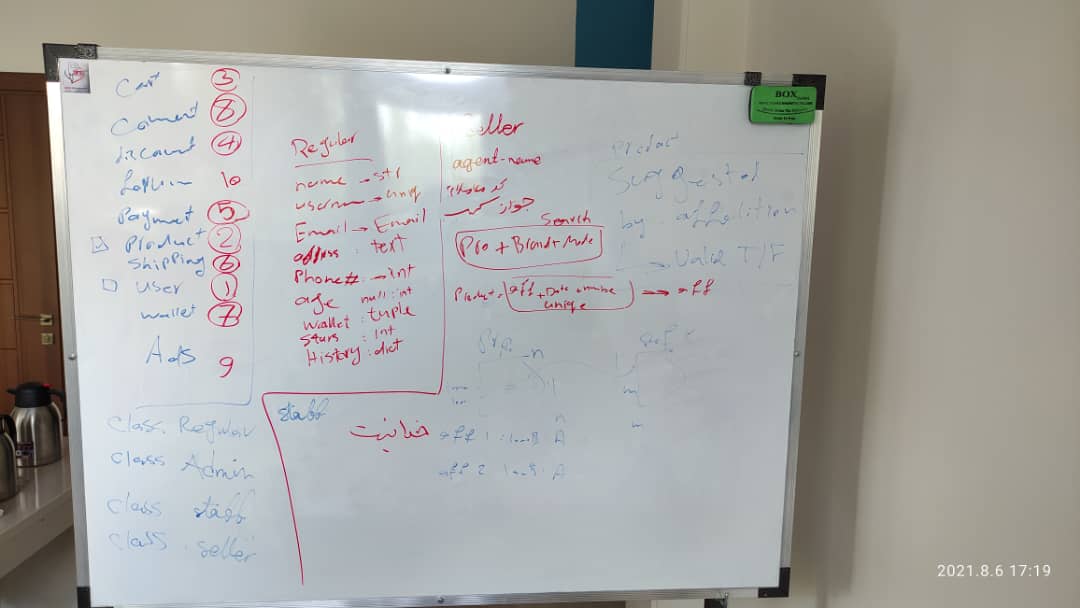 Cart 3
Coment 8
discount 4
10
Payment 5
Product 2
Shipping 6
User 1
wallet 7
Ads 9
class Regular
class Admin
class staff
class seller
Regular
name → str
username → uniq
Email → Email
address : text
Phone# → int
age null : int
wallet : tuple
stars : int
History : dict
Seller
agent-name
جواز کسب
Search
Pro + Brand + Mode
Product
unique → aff
Product
Suggested
by affelition
→ Valid T/F
Pro
n
m
n
m
aff 1 : A
aff 2 A
staff